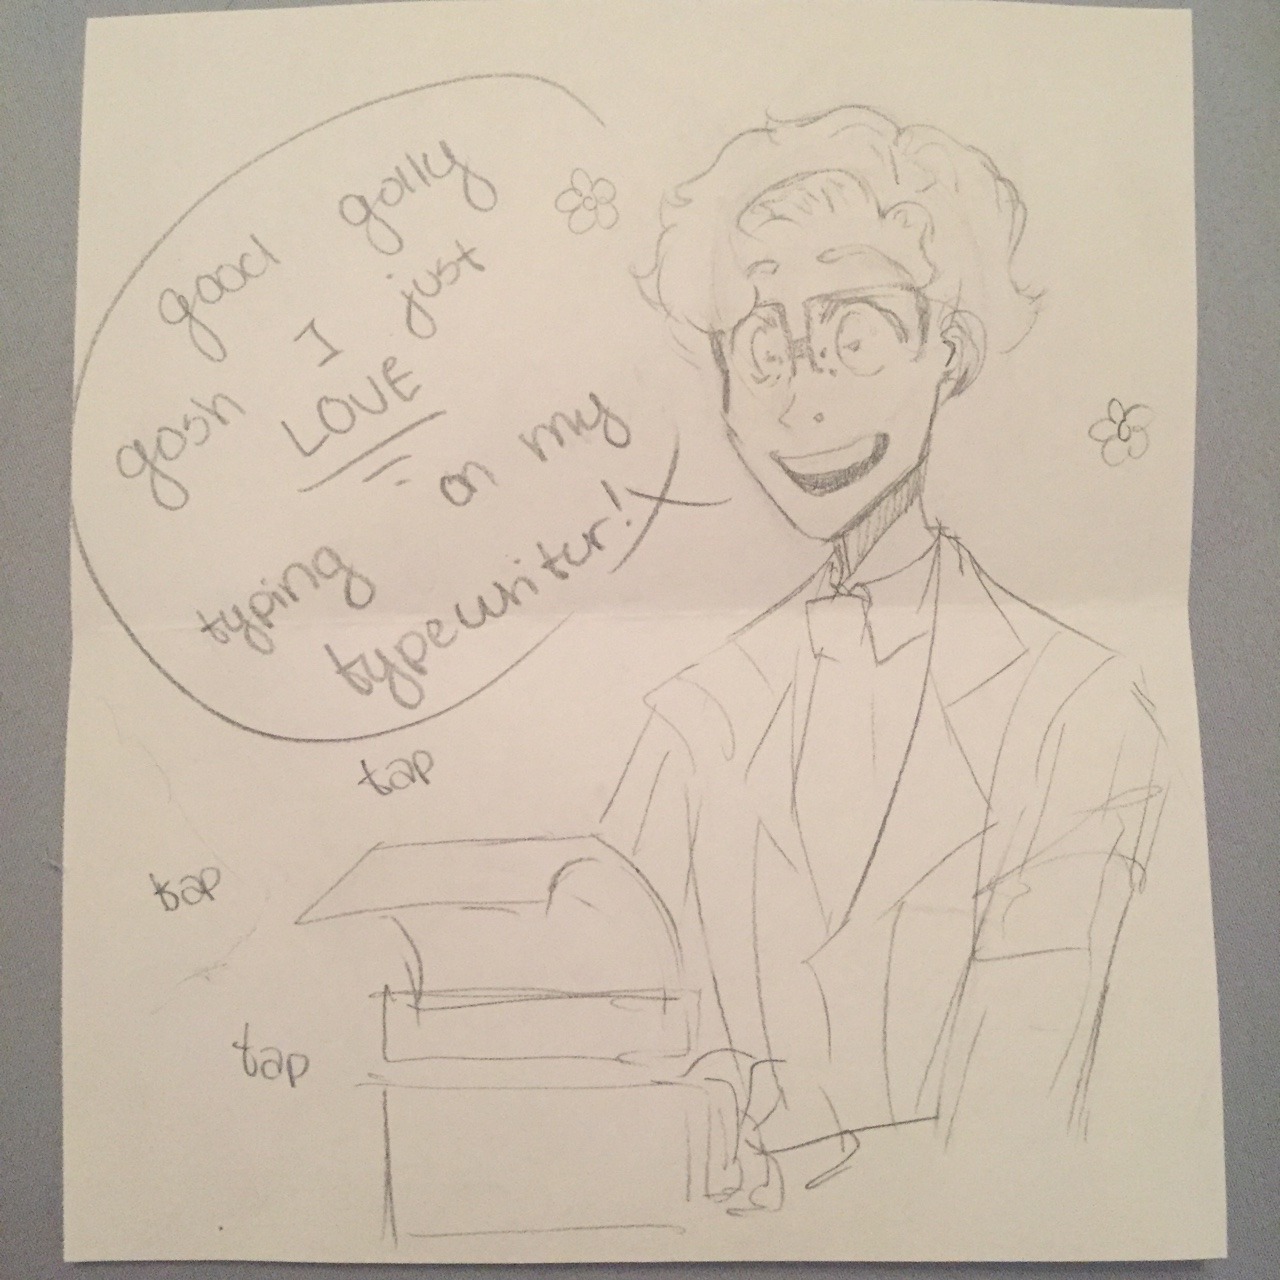 good golly
gosh I just
LOVE
typing on my
typewriter!
tap
tap
tap